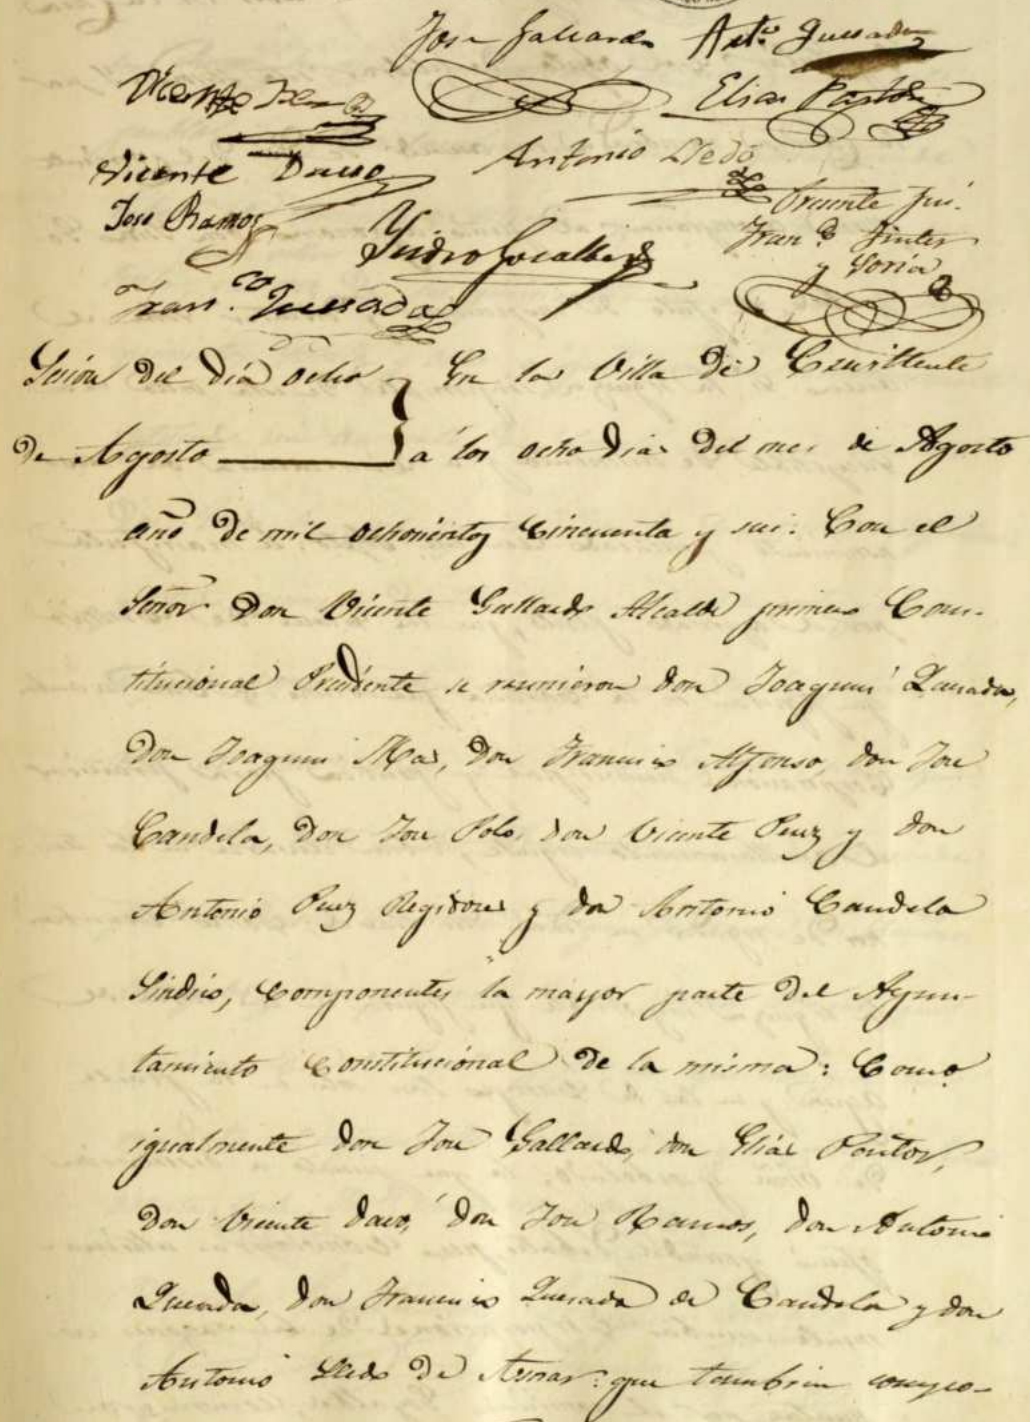 Jose Gallardo Anto. Quesada
Vicente
Elias Pastor
Vicente Davo
Antonio Lledó
Jose Ramos
Presente fui.
Ysidro Gocalbes
Fran.do Pintor
y Soria
Fran.co Quesada
Sesion del dia ocho
de Agosto
En la Villa de Crevillente
a los ocho dias del mes de Agosto
año de mil ochocientos cincuenta y seis. Con el
Señor Don Vicente Gallardo Alcalde primero Cons-
titucional Presidente se reunieron don Joaquin Quesada,
Don Joaquin Mas, Don Francisco Alfonso, don Jose
Candela, Don Jose Polo, don Vicente Perez y don
Antonio Perez Regidores y don Antonio Candela
Sindico, Componentes la mayor parte del Ayun-
tamiento Constitucional de la misma: Como
igualmente don Jose Gallardo, don Elias Pastor,
Don Vicente Davo, Don Jose Ramos, Don Antonio
Quesada, don Francisco Quesada de Candela y don
Antonio Lledo de Asnar: que tambien compo-